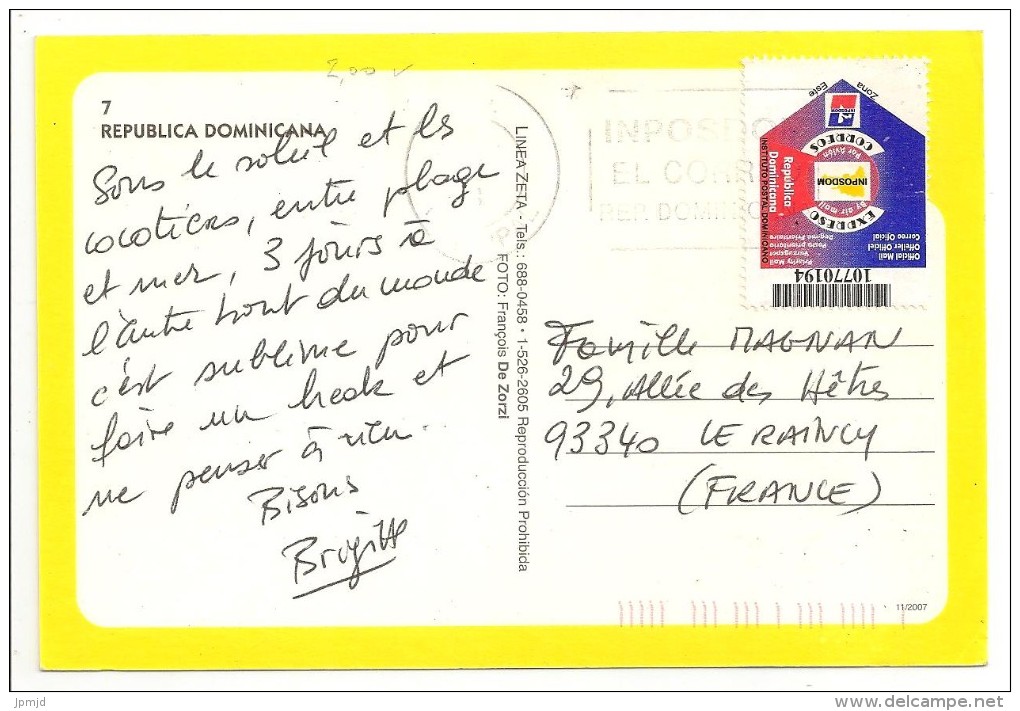 2,00
7
REPUBLICA DOMINICANA
Sous le soleil et les
cocotiers, entre plage
et mer, 3 jours à
l'autre bout du monde
c'est sublime pour
faire un break et
ne penser à rien.
Bisous
Brigitte
LINEA ZETA - Tels.: 688-0458 • 1-526-2605 Reproducción Prohibida
FOTO: François De Zorzi
INPOSDO
EL CORR
REP. DOMINIC
Zona
Este
INPOSDOM
CORREOS
Por Avión
INPOSDOM
By air mail
EXPRESO
República
Dominicana
INSTITUTO POSTAL DOMINICANO
Official Mail
Correo Oficial
Priority Mail
10770194
Famille MAGNAN
29, Allée des Hêtres
93340 LE RAINCY
(FRANCE)
11/2007
jpmjd
www.delcampe.net